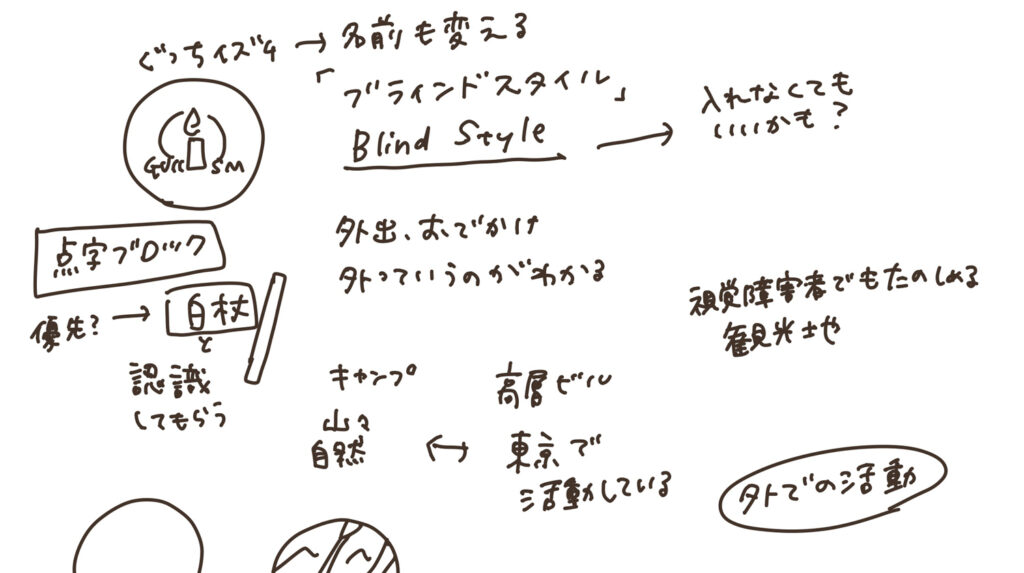 ぐっちイズム → 名前も変える
「ブラインドスタイル」
Blind Style
入れなくても
いいかも?
点字ブロック
優先? → 白杖
と
認識
してもらう
外出、おでかけ
外っていうのがわかる
視覚障害者でもたのしめる
観光地や
キャンプ
山々
自然
↔
高層ビル
東京で
活動している
外での活動